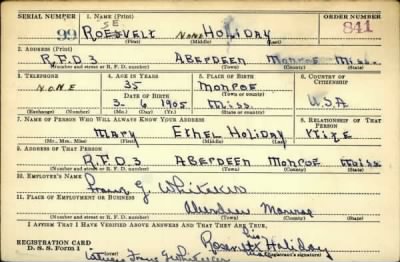 SERIAL NUMBER 1. NAME (Print) ORDER NUMBER
SE
99 ROESVELT NONE HOLIDAY 841
(First) (Middle) (Last)
2. ADDRESS (Print)
R.F.D 3 ABERDEEN MONROE MISS.
(Number and street or R. F. D. number) (Town) (County) (State)
3. TELEPHONE 4. AGE IN YEARS 5. PLACE OF BIRTH 6. COUNTRY OF CITIZENSHIP
NONE 35 MONROE
DATE OF BIRTH (Town or county)
3 6 1905 MISS. U.S.A
(Exchange) (Number) (Mo.) (Day) (Yr.) (State or country)
7. NAME OF PERSON WHO WILL ALWAYS KNOW YOUR ADDRESS 8. RELATIONSHIP OF THAT PERSON
MARY ETHEL HOLIDAY WIFE
(Mr., Mrs., Miss) (First) (Middle) (Last)
9. ADDRESS OF THAT PERSON
R.F.D 3 ABERDEEN MONROE MISS.
(Number and street or R. F. D. number) (Town) (County) (State)
10. EMPLOYER'S NAME
G.
11. PLACE OF EMPLOYMENT OR BUSINESS
Aberdeen Monroe
(Number and street or R. F. D. number) (Town) (County) (State)
I AFFIRM THAT I HAVE VERIFIED ABOVE ANSWERS AND THAT THEY ARE TRUE.
his
REGISTRATION CARD Holiday
D. S. S. Form 1 (Registrant's signature)